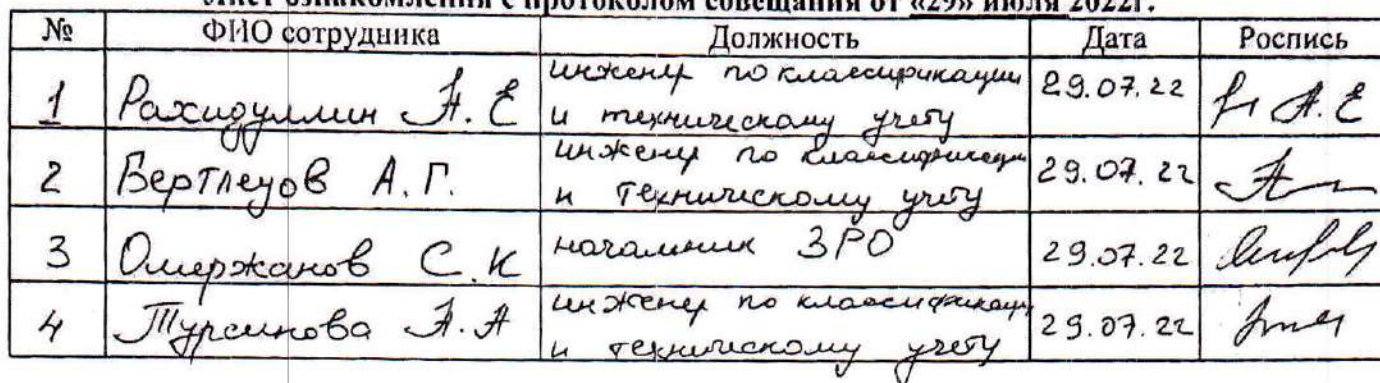 Лист ознакомления с протоколом совещания от «29» июля 2022г.
№ ФИО сотрудника Должность Дата Роспись
1 Рахидуллин А. Е инженер по классификации и техническому учету 29.07.22 А. Е
2 Бертлеуов А. Г. инженер по классификации и техническому учету 29.07.22
3 Омержанов С. К начальник ЗРО 29.07.22
4 Турсинова А. А инженер по классификации и техническому учету 29.07.22